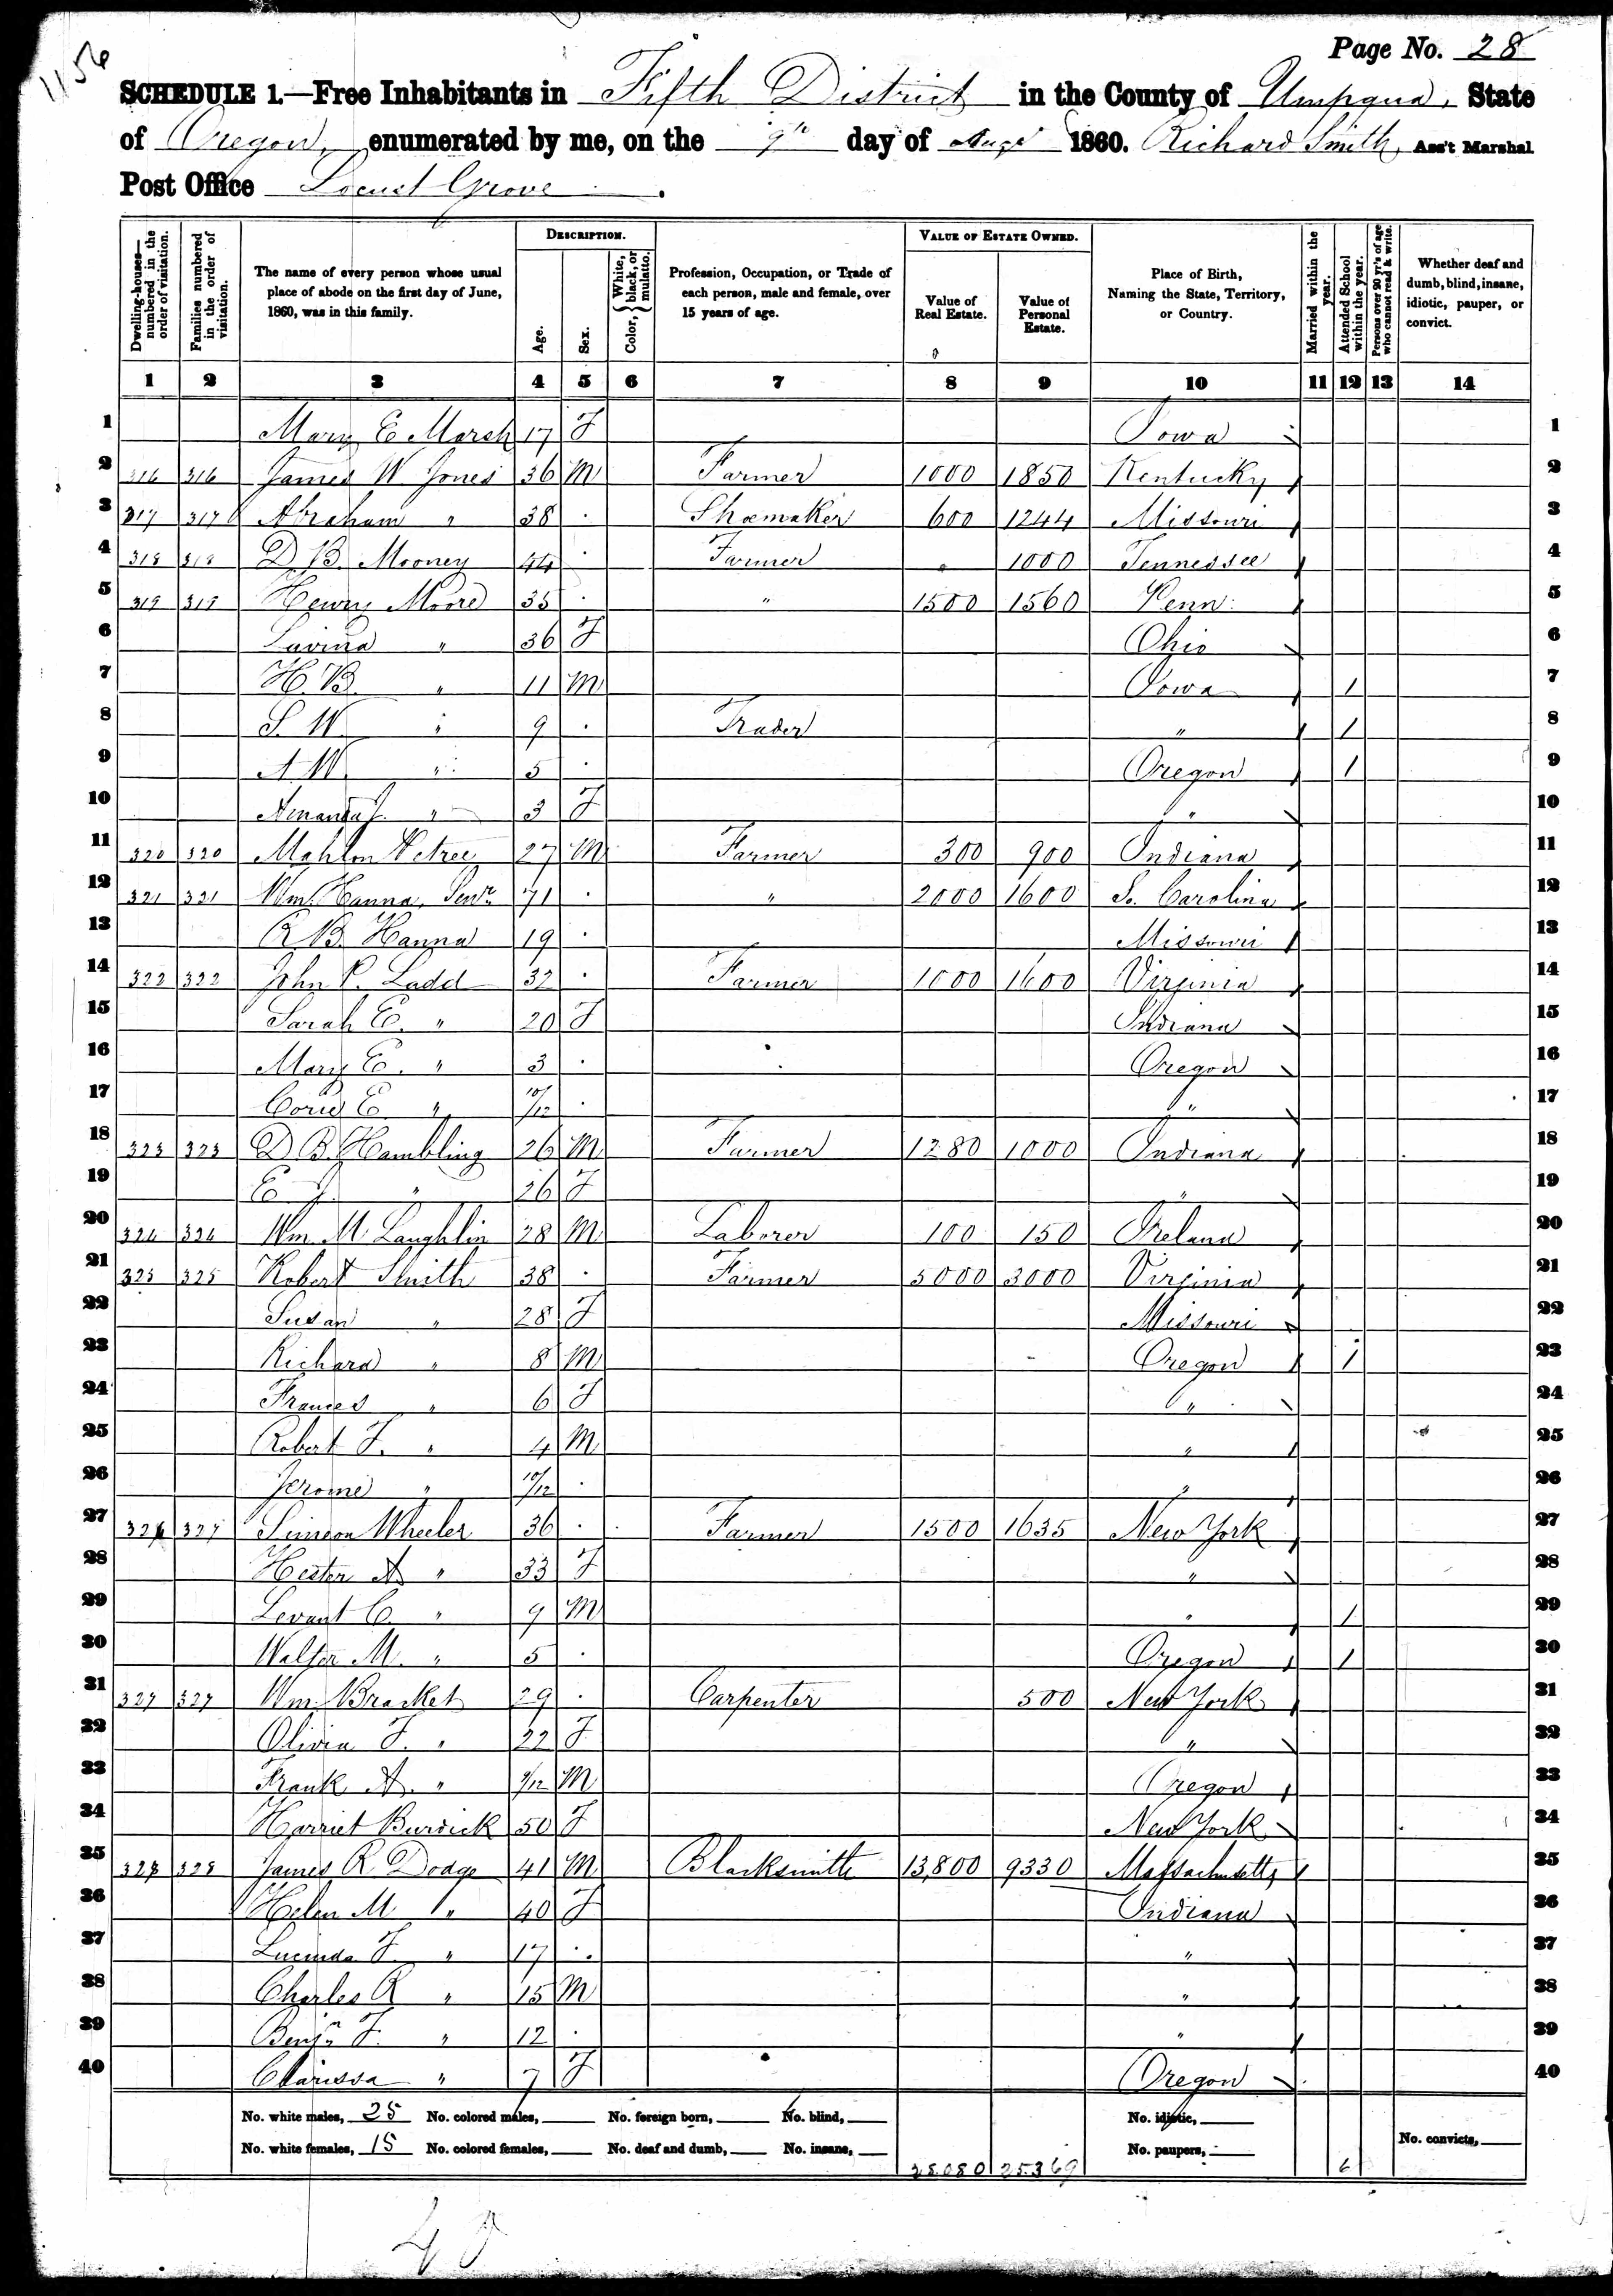 1156
Page No. 28
SCHEDULE 1.—Free Inhabitants in Fifth District in the County of Umpqua, State
of Oregon, enumerated by me, on the 9th day of Augt 1860. Richard Smith, Ass't Marshal
Post Office Locust Grove.
Dwelling-houses—numbered in the order of visitation.
Families numbered in the order of visitation.
The name of every person whose usual place of abode on the first day of June, 1860, was in this family.
DESCRIPTION.
Age.
Sex.
Color, { White, black, or mulatto.
Profession, Occupation, or Trade of each person, male and female, over 15 years of age.
VALUE OF ESTATE OWNED.
Value of Real Estate.
Value of Personal Estate.
Place of Birth, Naming the State, Territory, or Country.
Married within the year.
Attended School within the year.
Persons over 20 yr's of age who cannot read & write.
Whether deaf and dumb, blind, insane, idiotic, pauper, or convict.
1 2 3 4 5 6 7 8 9 10 11 12 13 14
1 Mary E Marsh 17 F Iowa 1
2 316 316 James W Jones 36 M Farmer 1000 1850 Kentucky 2
3 317 317 Abraham " 38 · Shoemaker 600 1244 Missouri 3
4 318 318 D. B. Mooney 44 · Farmer " 1000 Tennessee 4
5 319 319 Henry Moore 35 · " 1500 1560 Penn: 5
6 Lavina " 36 F Ohio 6
7 H. B. " 11 M Iowa 1 7
8 S. W. " 9 · Trader " 1 8
9 A W. " 5 · Oregon 1 9
10 Amanda J. " 3 F " 10
11 320 320 Mahlon 27 M Farmer 300 900 Indiana 11
12 321 321 Wm. Hanna, Senr. 71 · " 2000 1600 So. Carolina 12
13 R B. Hanna 19 · Missouri 13
14 322 322 John P. Ladd 32 · Farmer 1000 1600 Virginia 14
15 Sarah E. " 20 F Indiana 15
16 Mary E. " 3 · Oregon 16
17 Corie E " 10/12 · " 17
18 323 323 D B. Hambling 26 M Farmer 1280 1000 Indiana 18
19 E J. " 26 F " 19
20 324 324 Wm. McLaughlin 28 M Laborer 100 150 Ireland 20
21 325 325 Robert Smith 38 · Farmer 5000 3000 Virginia 21
22 Susan " 28 F Missouri 22
23 Richard " 8 M Oregon 1 23
24 Frances " 6 F " 24
25 Robert F. " 4 M " 25
26 Jerome " 10/12 · " 26
27 326 327 Simeon Wheeler 36 · Farmer 1500 1635 New York 27
28 Hester A " 33 F " 28
29 Levant C. " 9 M " 1 29
30 Walter M. " 5 · Oregon 1 30
31 327 327 Wm. Bracket 29 · Carpenter 500 New York 31
32 Olivia F. " 22 F " 32
33 Frank A. " 9/12 M Oregon 33
34 Harriet Burdick 50 F New York 34
35 328 328 James R Dodge 41 M Blacksmith 13,800 9330 Massachusetts 35
36 Helen M " 40 F Indiana 36
37 Lucinda F. " 17 · " 37
38 Charles R " 15 M " 38
39 Benjn F. " 12 · " 39
40 Clarissa " 7 F Oregon 40
No. white males, 25 No. colored males, No. foreign born, No. blind, No. idiotic,
No. white females, 15 No. colored females, No. deaf and dumb, No. insane, No. paupers, No. convicts,
28.080 25.369 6
40